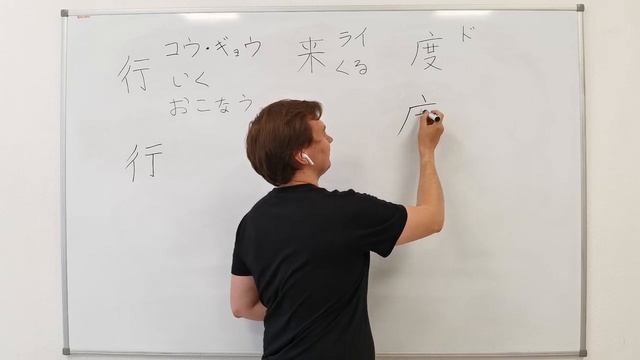 行 コウ・ギョウ
いく
おこなう
来 ライ
くる
度 ド
行